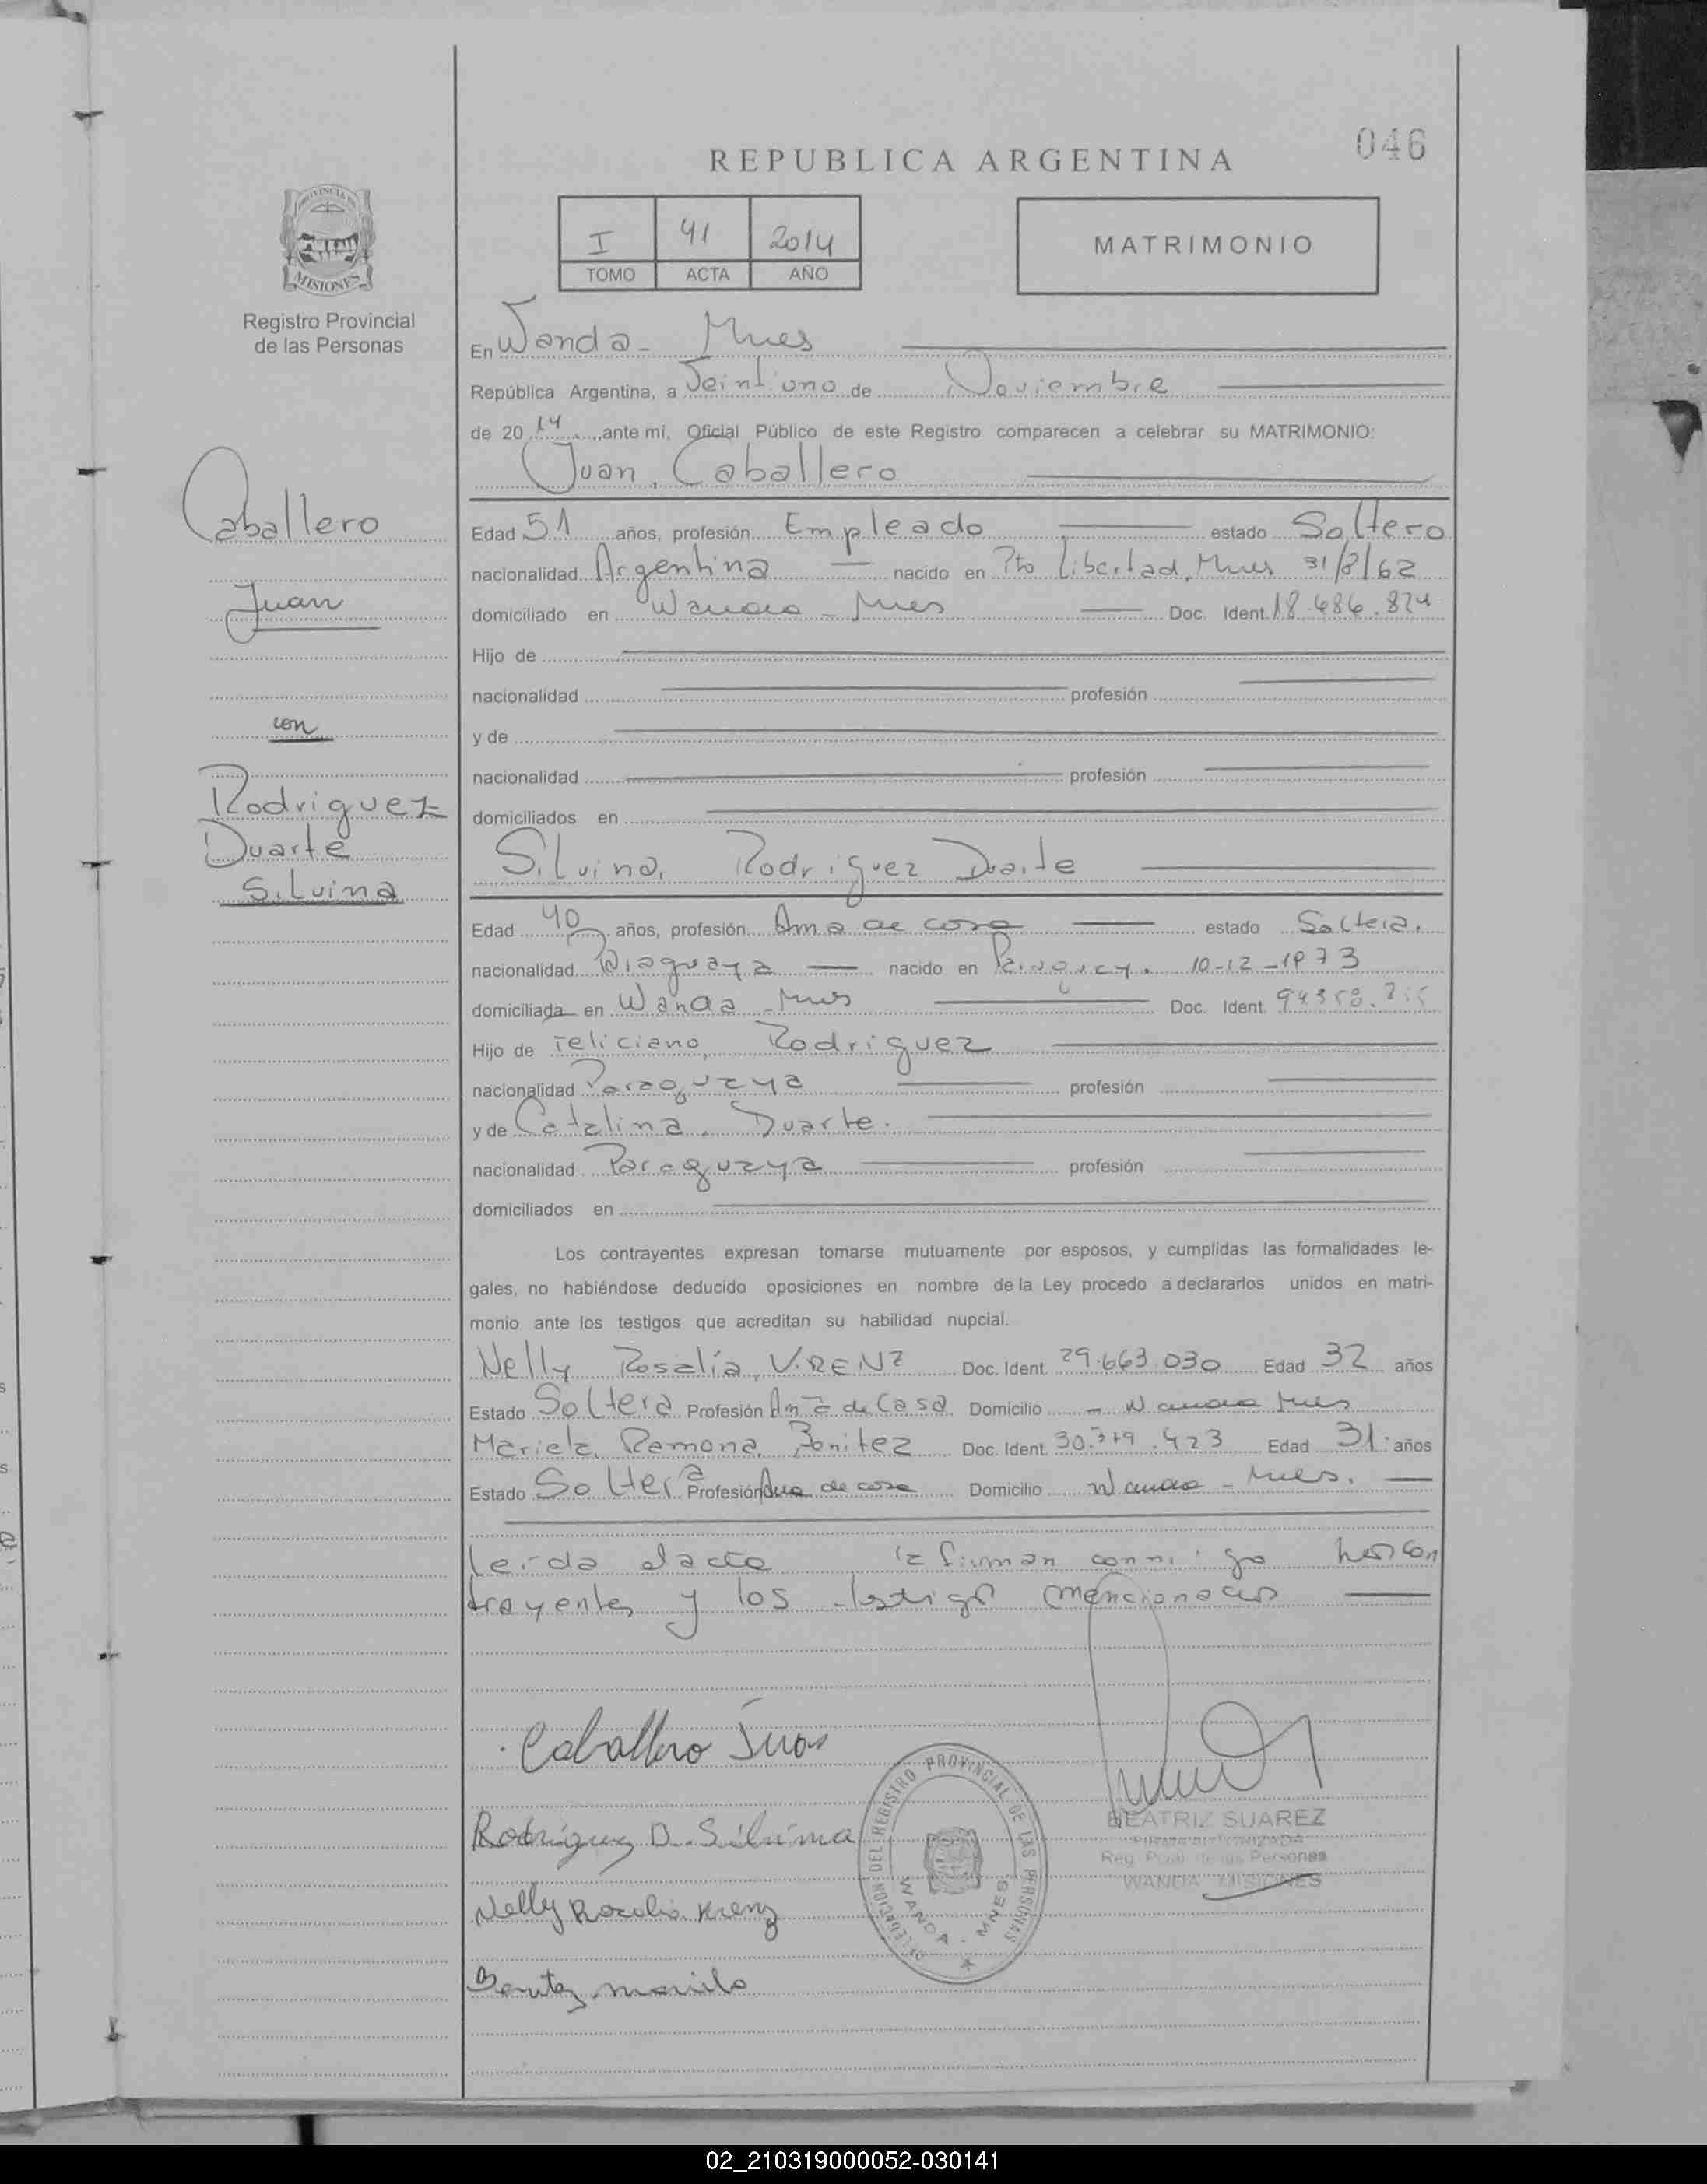 046
REPUBLICA ARGENTINA
I 41 2014
TOMO ACTA AÑO
MATRIMONIO
PROVINCIA DE
MISIONES
Registro Provincial
de las Personas
En Wanda - Mnes
República Argentina, a Veintiuno de Noviembre
de 20 14 , ante mi, Oficial Público de este Registro comparecen a celebrar su MATRIMONIO:
Juan, Caballero
Caballero
Juan
con
Rodriguez
Duarte
Silvina
Edad 51 años, profesión Empleado estado Soltero
nacionalidad Argentina nacido en Pto Libertad, Mnes 31/8/62
domiciliado en Wanda - Mnes Doc. Ident. 18.486.824
Hijo de
nacionalidad profesión
y de
nacionalidad profesión
domiciliados en
Silvina, Rodriguez Duarte
Edad 40 años, profesión Ama de casa estado Soltera.
nacionalidad Paraguaya nacido en Paraguay. 10-12-1973
domiciliada en Wanda - Mnes Doc. Ident.
Hijo de Feliciano, Rodriguez
nacionalidad Paraguaya profesión
y de Catalina. Duarte.
nacionalidad Paraguaya profesión
domiciliados en
Los contrayentes expresan tomarse mutuamente por esposos, y cumplidas las formalidades le-
gales, no habiéndose deducido oposiciones en nombre de la Ley procedo a declararlos unidos en matri-
monio ante los testigos que acreditan su habilidad nupcial.
Nelly Rosalía, Doc. Ident. 29.663.030 Edad 32 años
Estado Soltera Profesión Ama de Casa Domicilio - Wanda Mnes
Mariela, Ramona, Benitez Doc. Ident. Edad 31. años
Estado Soltera Profesión Ama de casa Domicilio Wanda - Mnes.
Leída el acta la firman conmigo los con
trayentes y los testigos mencionados
Caballero Juan
Rodriguez D. Silvina
Nelly Rosalia Krenz
Benitez Mariela
DELEGACION DEL REGISTRO PROVINCIAL DE LAS PERSONAS
WANDA - MNES
BEATRIZ SUAREZ
FIRMA AUTORIZADA
Reg. Pcial. de las Personas
WANDA MISIONES
02_210319000052-030141